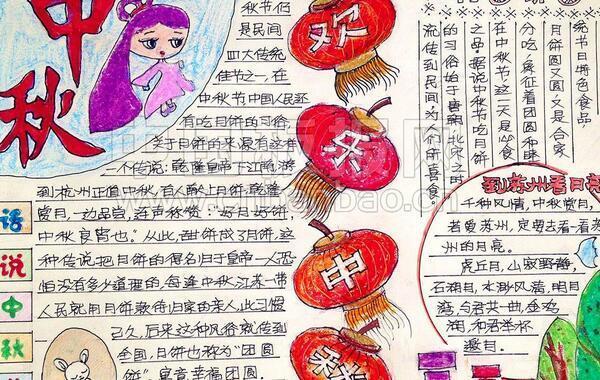 中
秋
秋节但
是民间
四大传统
佳节之一,在
中秋节中国人民还
有吃月饼的习俗
关于月饼的来源有这样
一个传说:乾隆皇帝下江南,游
到杭州正值中秋,有人献上月饼,乾隆
赏月,一边品尝,连声称赞:"好月好饼,
中秋良宵也"。从此,甜饼成了月饼,这
种传说把月饼的得名归于皇帝一人恐
怕没有多少道理的,每逢中秋,江苏一带
人民就用月饼款待归家的亲人,此习俗
已久,后来这种风俗就传到
全国,月饼也称为"团圆
饼",寓意幸福团圆。
话
说
中
秋
欢
乐
中
秋
统节日特色食品,
月饼圆又圆,又是合家
分吃,象征着团圆和睦,
在中秋节这一天是必食
之品。据说中秋节吃月饼
的习俗始于唐朝,北宋之时
流传到民间为人们所喜食。
到杭州看月亮
千种风情,中秋赏月,
者爱苏州,定要去看一看苏
州的月亮。
虎丘月,山寂野静,
石湖月,水渺风清,明月
湾,与君共一曲,金鸡
湖,和君举杯
邀月。